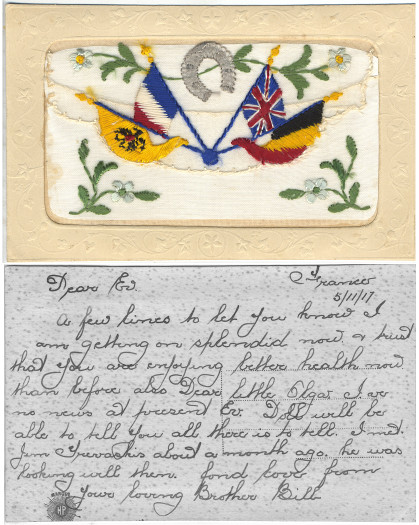 Dear Ev.
France
5/11/17
A few lines to let you know I
am getting on splendid now & trust
that you are enjoying better health now
than before also Dear little Olga I've
no news at present Ev. Doll will be
able to tell you all there is to tell. I met
Jim about a month ago, he was
looking well then. fond love from
Your loving Brother Bill